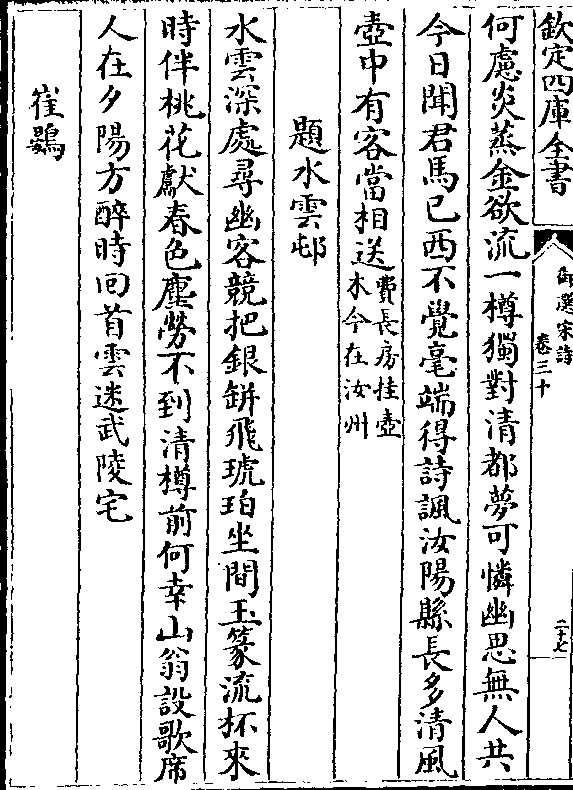 欽定四庫全書
御選宋詩
卷三十
二十七
何慮炎蒸金欲流一樽獨對清都夢可憐幽思無人共
今日聞君馬已西不覺毫端得詩諷汝陽縣長多清風
壺中有客當相送費長房挂壺
木今在汝州
題水雲邨
水雲深處尋幽客競把銀缾飛琥珀坐間玉篆流杯來
時伴桃花獻春色塵勞不到清樽前何幸山翁設歌席
人在夕陽方醉時回首雲迷武陵宅
崔鶠